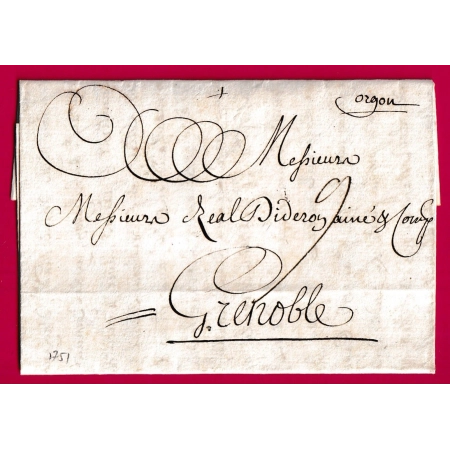 orgon
Messieurs
Messieurs Real Dideron ainé & Comp
9
Grenoble
1751